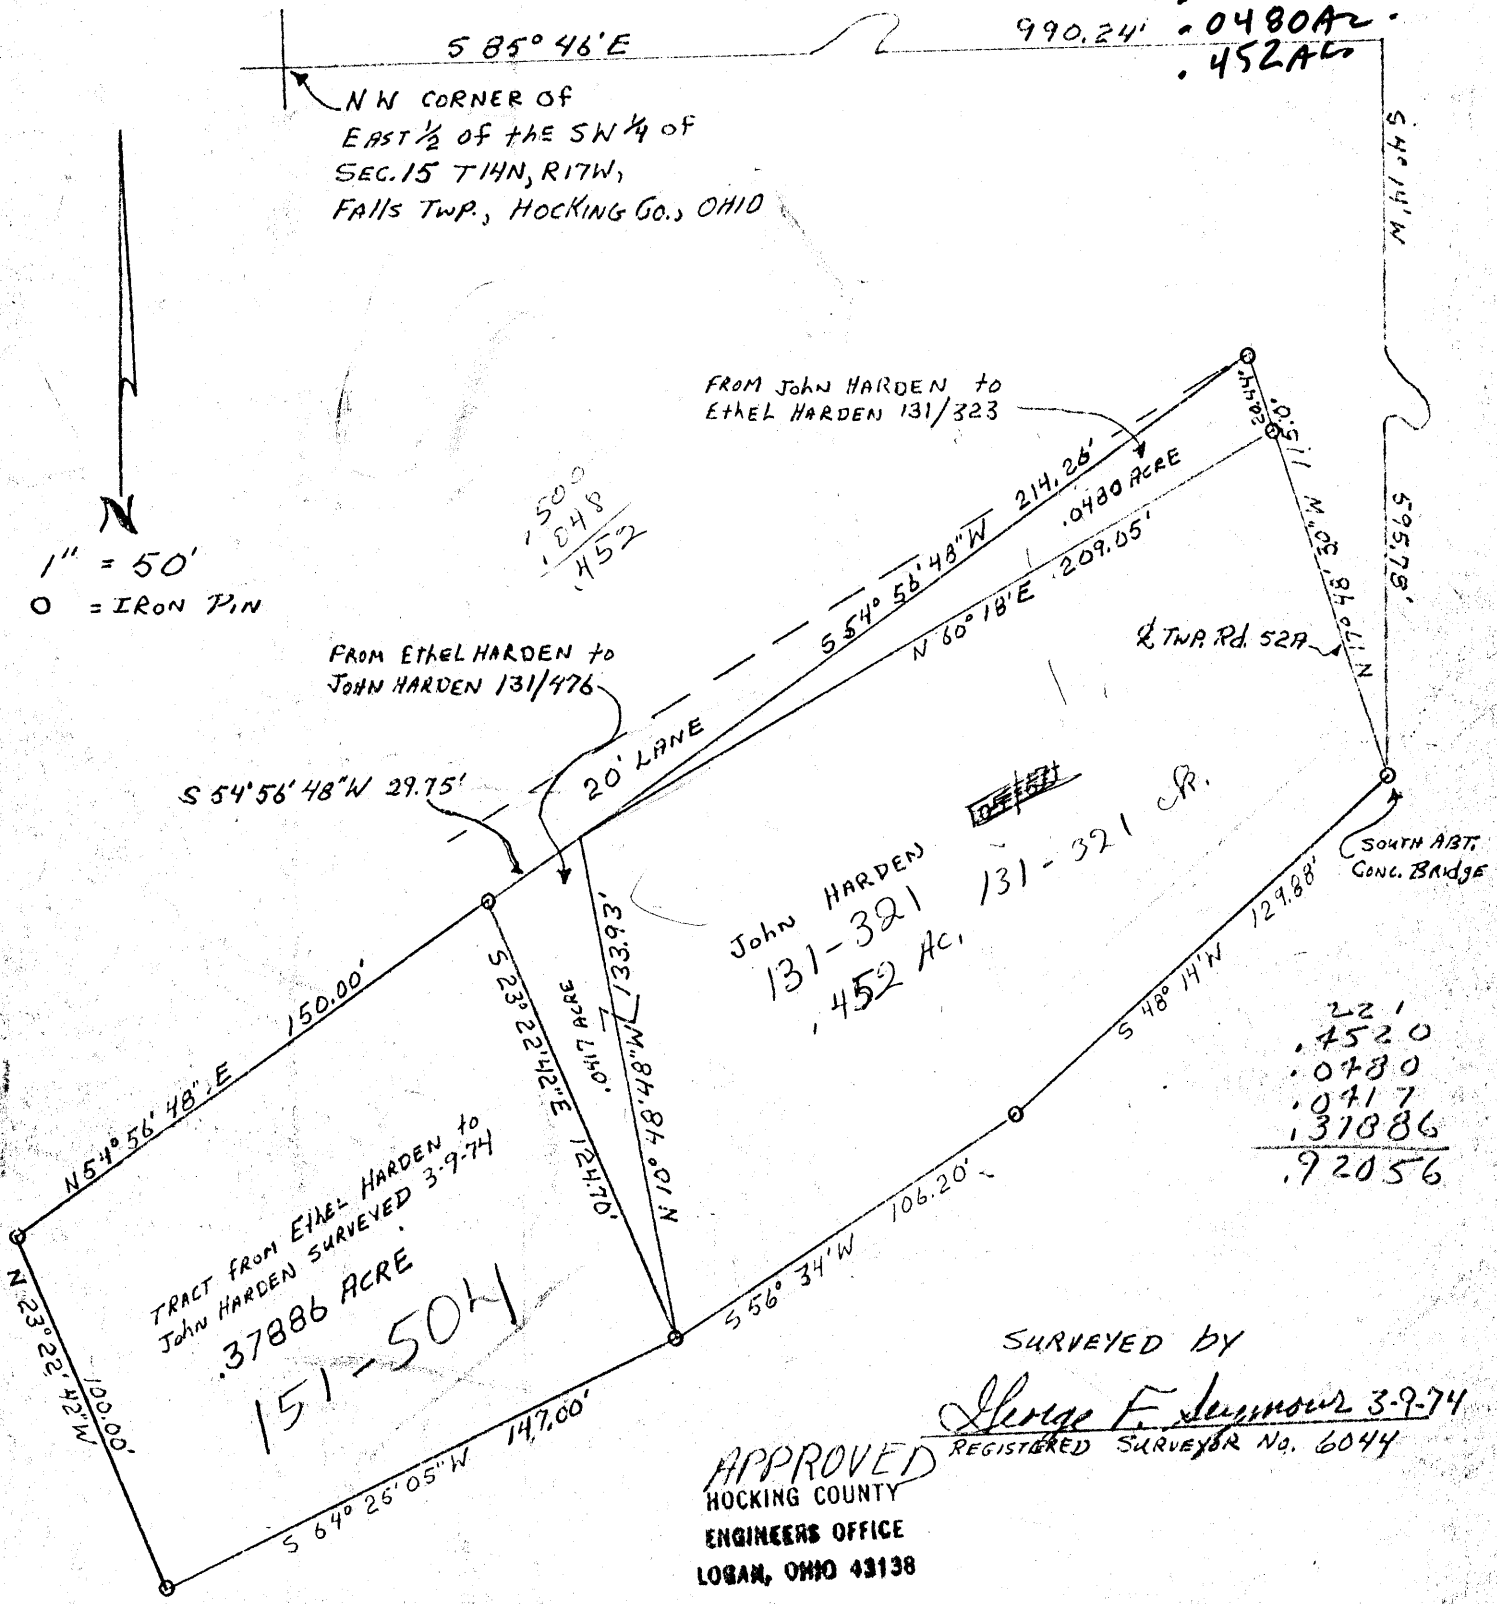 S 85° 46' E
990.24'
.0480 Ac.
.452 Ac.
NW CORNER OF
EAST ½ OF thE SW ¼ OF
SEC. 15 T14N, R17W,
FAlls TWP., HOCKING CO., OHIO
S 4° 14' W
595.78'
N
1" = 50'
O = IRON PIN
FROM JohN HARDEN to
EthEL HARDEN 131/323
.500
.048
.452
S 54° 56' 48" W 214.26'
.0480 ACRE
N 60° 18' E 209.05'
N 17° 48' 30" W 115.0'
TWP. Rd. 52A
FROM EthEL HARDEN to
JOHN HARDEN 131/476
20' LANE
S 54° 56' 48" W 29.75'
John HARDEN
131-321
131-321 ck.
.452 Ac.
SOUTH ABT.
CONC. BRidgE
S 48° 14' W 129.88'
150.00'
N 54° 56' 48" E
S 23° 22' 42" E 124.70'
.0417 ACRE
N 10° 48' 48" W 133.93'
221
.4520
.0480
.0417
.37886
.92056
S 56° 34' W 106.20'
TRACT FROM EthEL HARDEN to
John HARDEN SURVEYED 3-9-74
.37886 ACRE
151-504
N 23° 22' 42" W
100.00'
S 64° 26' 05" W 147.00'
SURVEYED by
George F. Seymour 3-9-74
REGISTERED SURVEYOR No. 6044
APPROVED
HOCKING COUNTY
ENGINEERS OFFICE
LOGAN, OHIO 43138